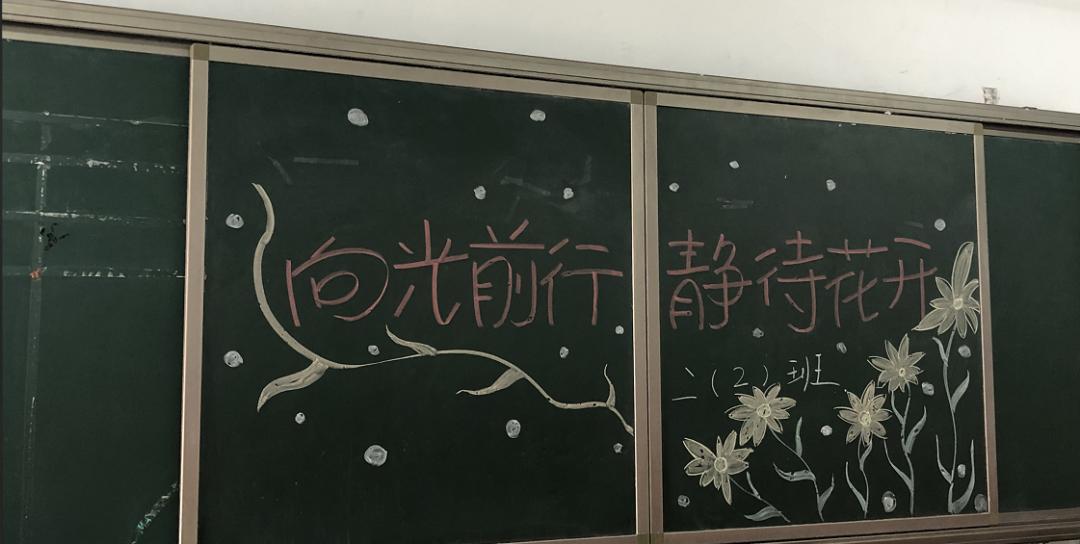 向光前行 静待花开
二(2)班